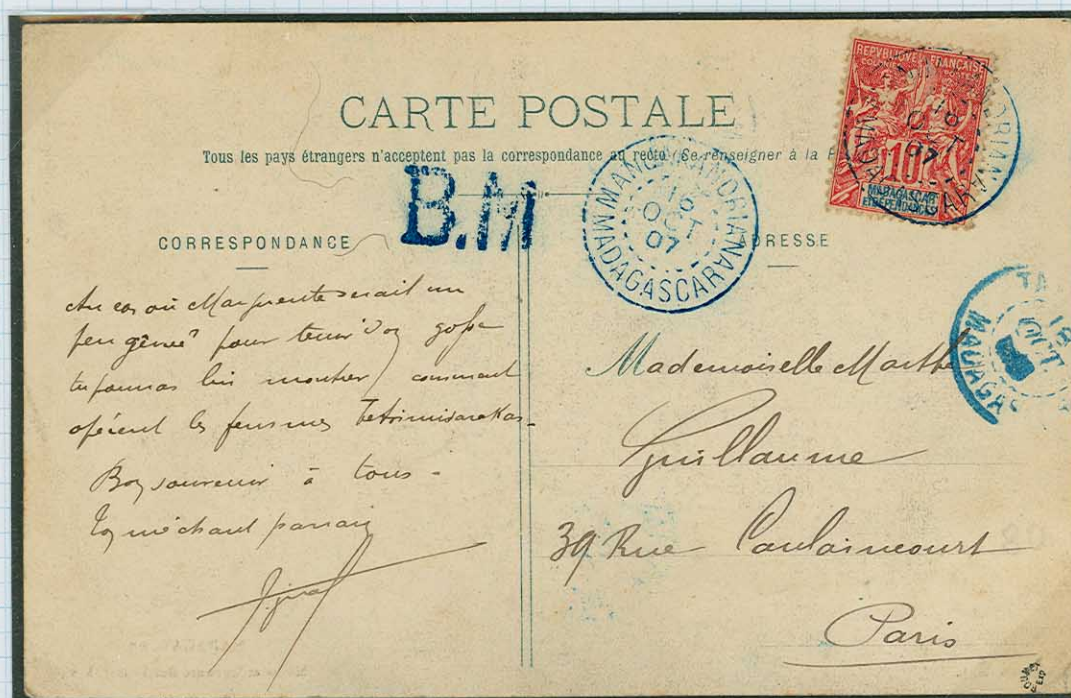 CARTE POSTALE
Tous les pays étrangers n'acceptent pas la correspondance au recto (Se renseigner à la
REPVBLIQVE FRANÇAISE
COLONIES POSTES
10
MADAGASCAR
ET DÉPENDANCES
MANANDRIANA
16
OCT
07
MADAGASCAR
B.M
16
OCT
07
MADAGASCAR
CORRESPONDANCE
ADRESSE
TA
18
OCT
MADAGAS
Au cas où Marguerite serait un
peu gênée pour tenir son gosse
tu pourras lui montrer comment
opèrent les femmes Betsimisarakas.
Bon souvenir à tous.
Ton méchant parrain
Mademoiselle Marthe
Guillaume
39 Rue Caulaincourt
Paris